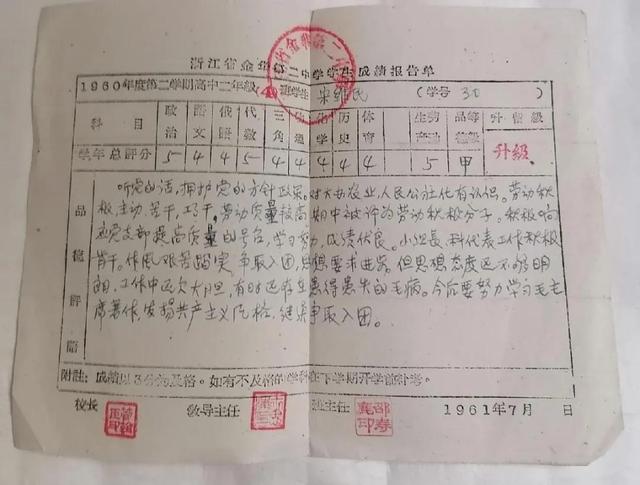 浙江省金华第二中学学生成绩报告单
1960年度第二学期高中二年级 班学生 宋维民 (学号 30 )
科目 政治 語文 俄語 代数 三角 化学 历史 体育 生产劳动 品德等級 升留級
学年总評分 5 4 4 5 4 4 4 4 4 5 甲 升級
品德評語
听党的话,拥护党的方針政策。对大办农业,人民公社化有认识。劳动积
极主动,苦干,巧干,劳动质量较高 期中被评为劳动积极分子。积极响
应党支部提高质量的号召,学习努力,成绩优良。小组長、科代表工作积极
肯干。作风艰苦踏实,争取入团,思想要求进步。但思想态度还不够明
朗,工作中还欠大胆,有时还有患得患失的毛病。今后要努力学习毛主
席著作,发扬共产主义风格,继续争取入团。
附注:成績以3分为及格。如有不及格的学科在下学期开学前补考。
校长 教导主任 班主任 1961年7月 日